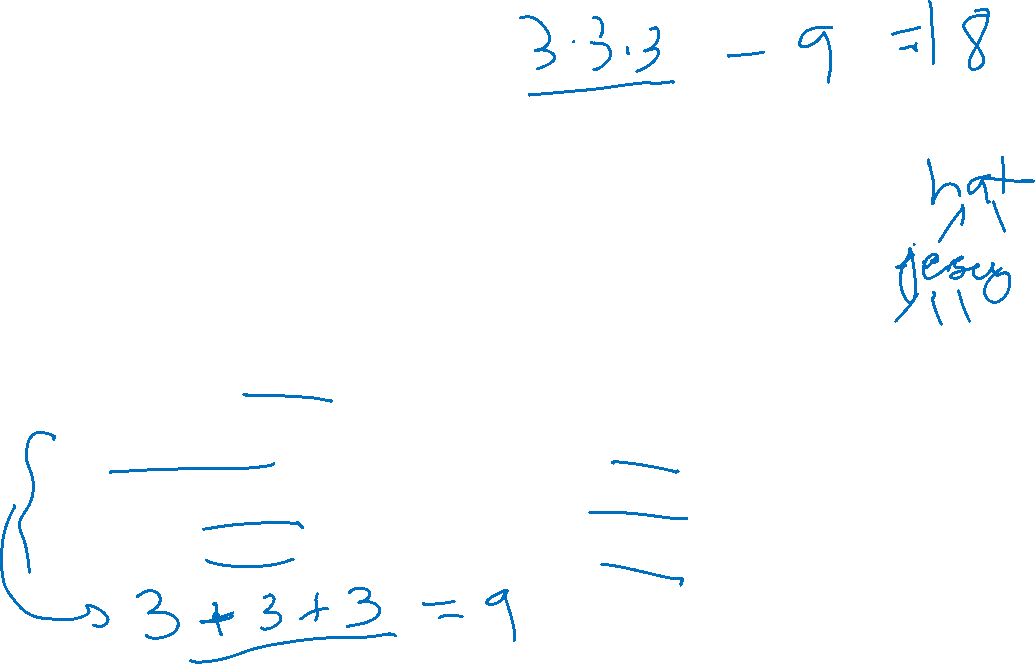 3·3·3 - 9 = 18
hat
jersey
3 + 3 + 3 = 9